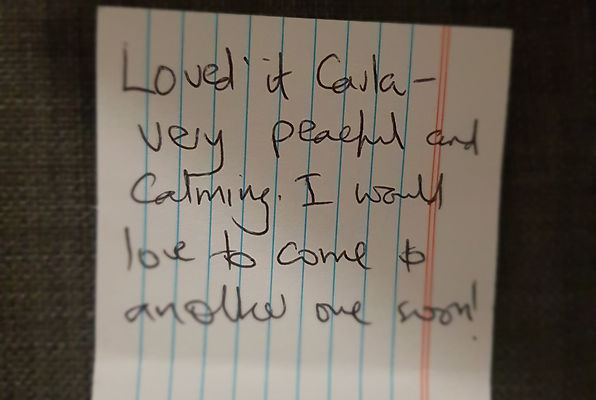 Loved it Carla -
very peaceful and
Calming. I would
love to come to
another one soon!